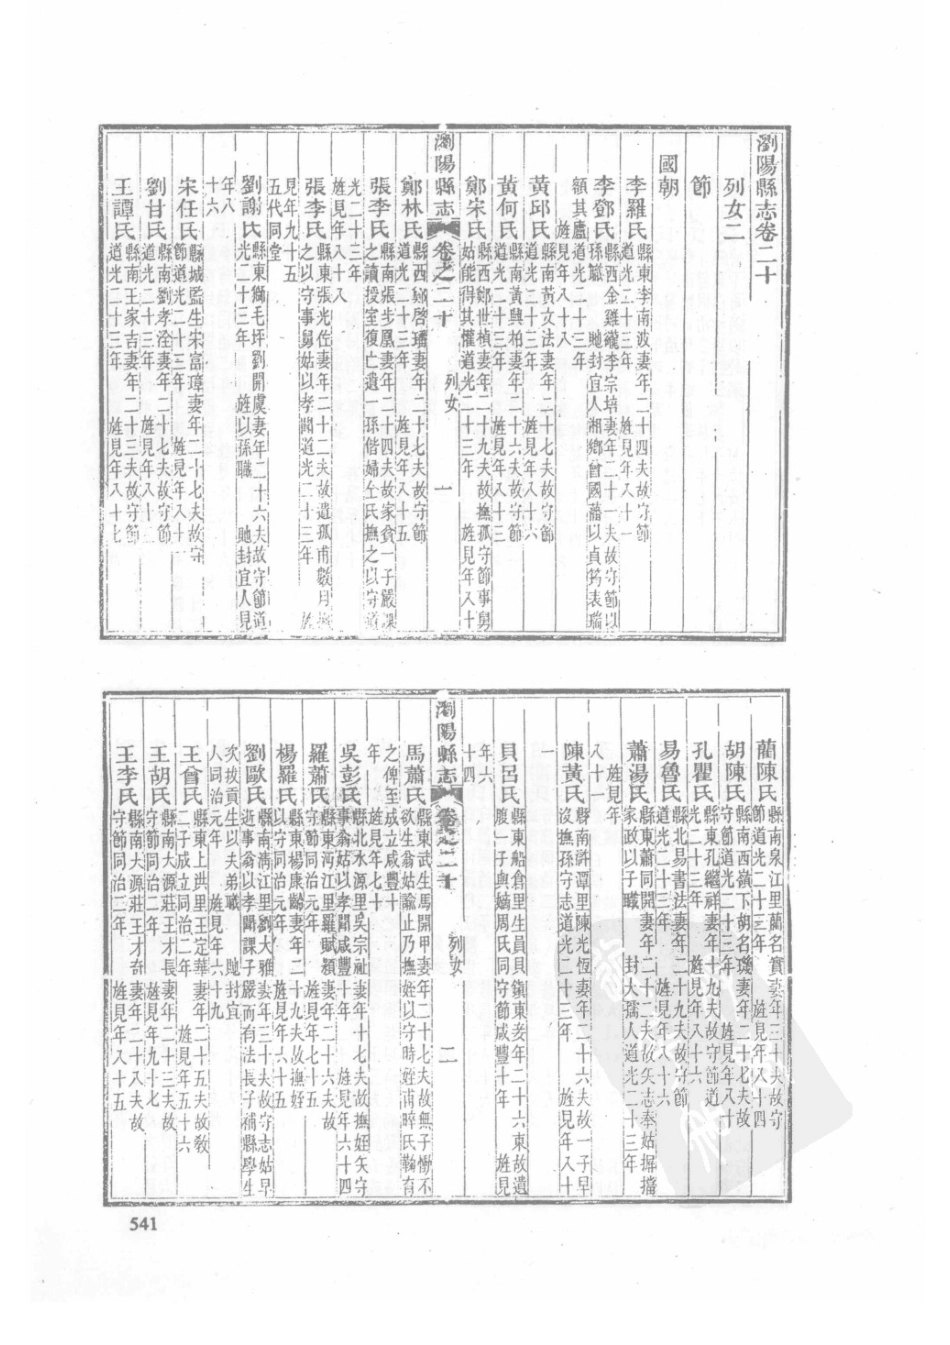 瀏陽縣志卷二十
列女二
節
國朝
李羅氏縣東李南波妻年二十四夫故守節道光二十三年 旌見年八十一
李鄧氏縣西金雞李宗培妻年二十一夫故守節以孫 貤封宜人湘鄉曾國藩以貞筠表
額其廬道光二十三年 旌見年八十八
黃邱氏縣南黃文法妻年二十七夫故守節道光二十三年 旌見年八十六
黃何氏縣南黃興柏妻年二十六夫故守節道光二十三年 旌見年八十三
鄭宋氏縣西鄭世楨妻年二十九夫故撫孤守節事舅姑能得其懽道光二十三年 旌見年八十
瀏陽縣志 卷之二十 列女 一
鄭林氏縣西鄭啓璠妻年二十七夫故守節道光二十三年 旌見年八十五
張李氏縣南張步凰妻年二十四夫故家貧一子嚴課之讀授室復亡遺一孫偕婦 氏撫之以守道
光二十三年 旌見年八十八
張李氏縣東張光佐妻年二十二夫故遺孤甫 月 之以守事舅姑以孝聞道光二十三年 旌
見年九十五五代同堂
劉謝氏縣東獅毛坪劉開虞妻年二十六夫故守節道光二十三年 旌以孫職 貤封宜人見
年八十六
宋任氏縣城監生宋富璋妻年二十七夫故守節道光二十三年 旌見年八十
劉甘氏縣南劉孝洤妻年二十七夫故守節道光二十三年 旌見年八十
王譚氏縣南王家吉妻年二十三夫故守節道光二十三年 旌見年八十七
藺陳氏縣南泉江里藺名寶妻年三十夫故守節道光二十三年 旌見年八十四
胡陳氏縣南西嶺下胡名璣妻年二十七夫故守節道光二十三年 旌見年八十
孔瞿氏縣東孔繼祥妻年十九夫故守節道光二十三年 旌見年八十六
易魯氏縣北易書法妻年二十九夫故守節道光二十三年 旌見年八十六
蕭湯氏縣東蕭同開妻年二十二夫故矢志奉姑摒擋家政以子職 封大孺人道光二十三年
旌見年八十一
陳黃氏縣南許潭里陳光恆妻年二十六夫故一子早沒撫孫守志道光二十三年 旌見年八十
一
貝呂氏縣東船倉里生員貝鎮東妾年二十六東故遺腹一子與嫡周氏同守節咸豐十年 旌見
年六十四
瀏陽縣志 卷之二十 列女 二
馬蕭氏縣東武生馬開甲妻年二十七夫故無子慟不欲生翁姑諭止乃撫姪以守時姪甫晬氏鞠育
之俾至成立咸豐十年 旌見年七十
吳彭氏縣北水源里吳宗祉妻年十七夫故撫姪矢守事翁姑以孝聞咸豐十年 旌見年六十四
羅蕭氏縣東沔江里羅賦穎妻年二十六夫故守節同治元年 旌見年七十五
楊羅氏縣東楊康齡妻年二十九夫故撫姪以守同治元年 旌見年六十五
劉歐氏縣南清江里劉大雅妻年三十夫故守志姑早逝事翁以孝聞課子嚴而有法長子補縣學生
次拔貢生以夫弟職 貤封宜人同治元年 旌見年六十九
王曾氏縣東上洪里王定華妻年二十五夫故敎二子成立同治二年 旌見年五十六
王胡氏縣南大源莊王才長妻年二十三夫故守節同治二年 旌見年九十七
王李氏縣南大源莊王才奇妻年二十八夫故守節同治二年 旌見年八十五
541